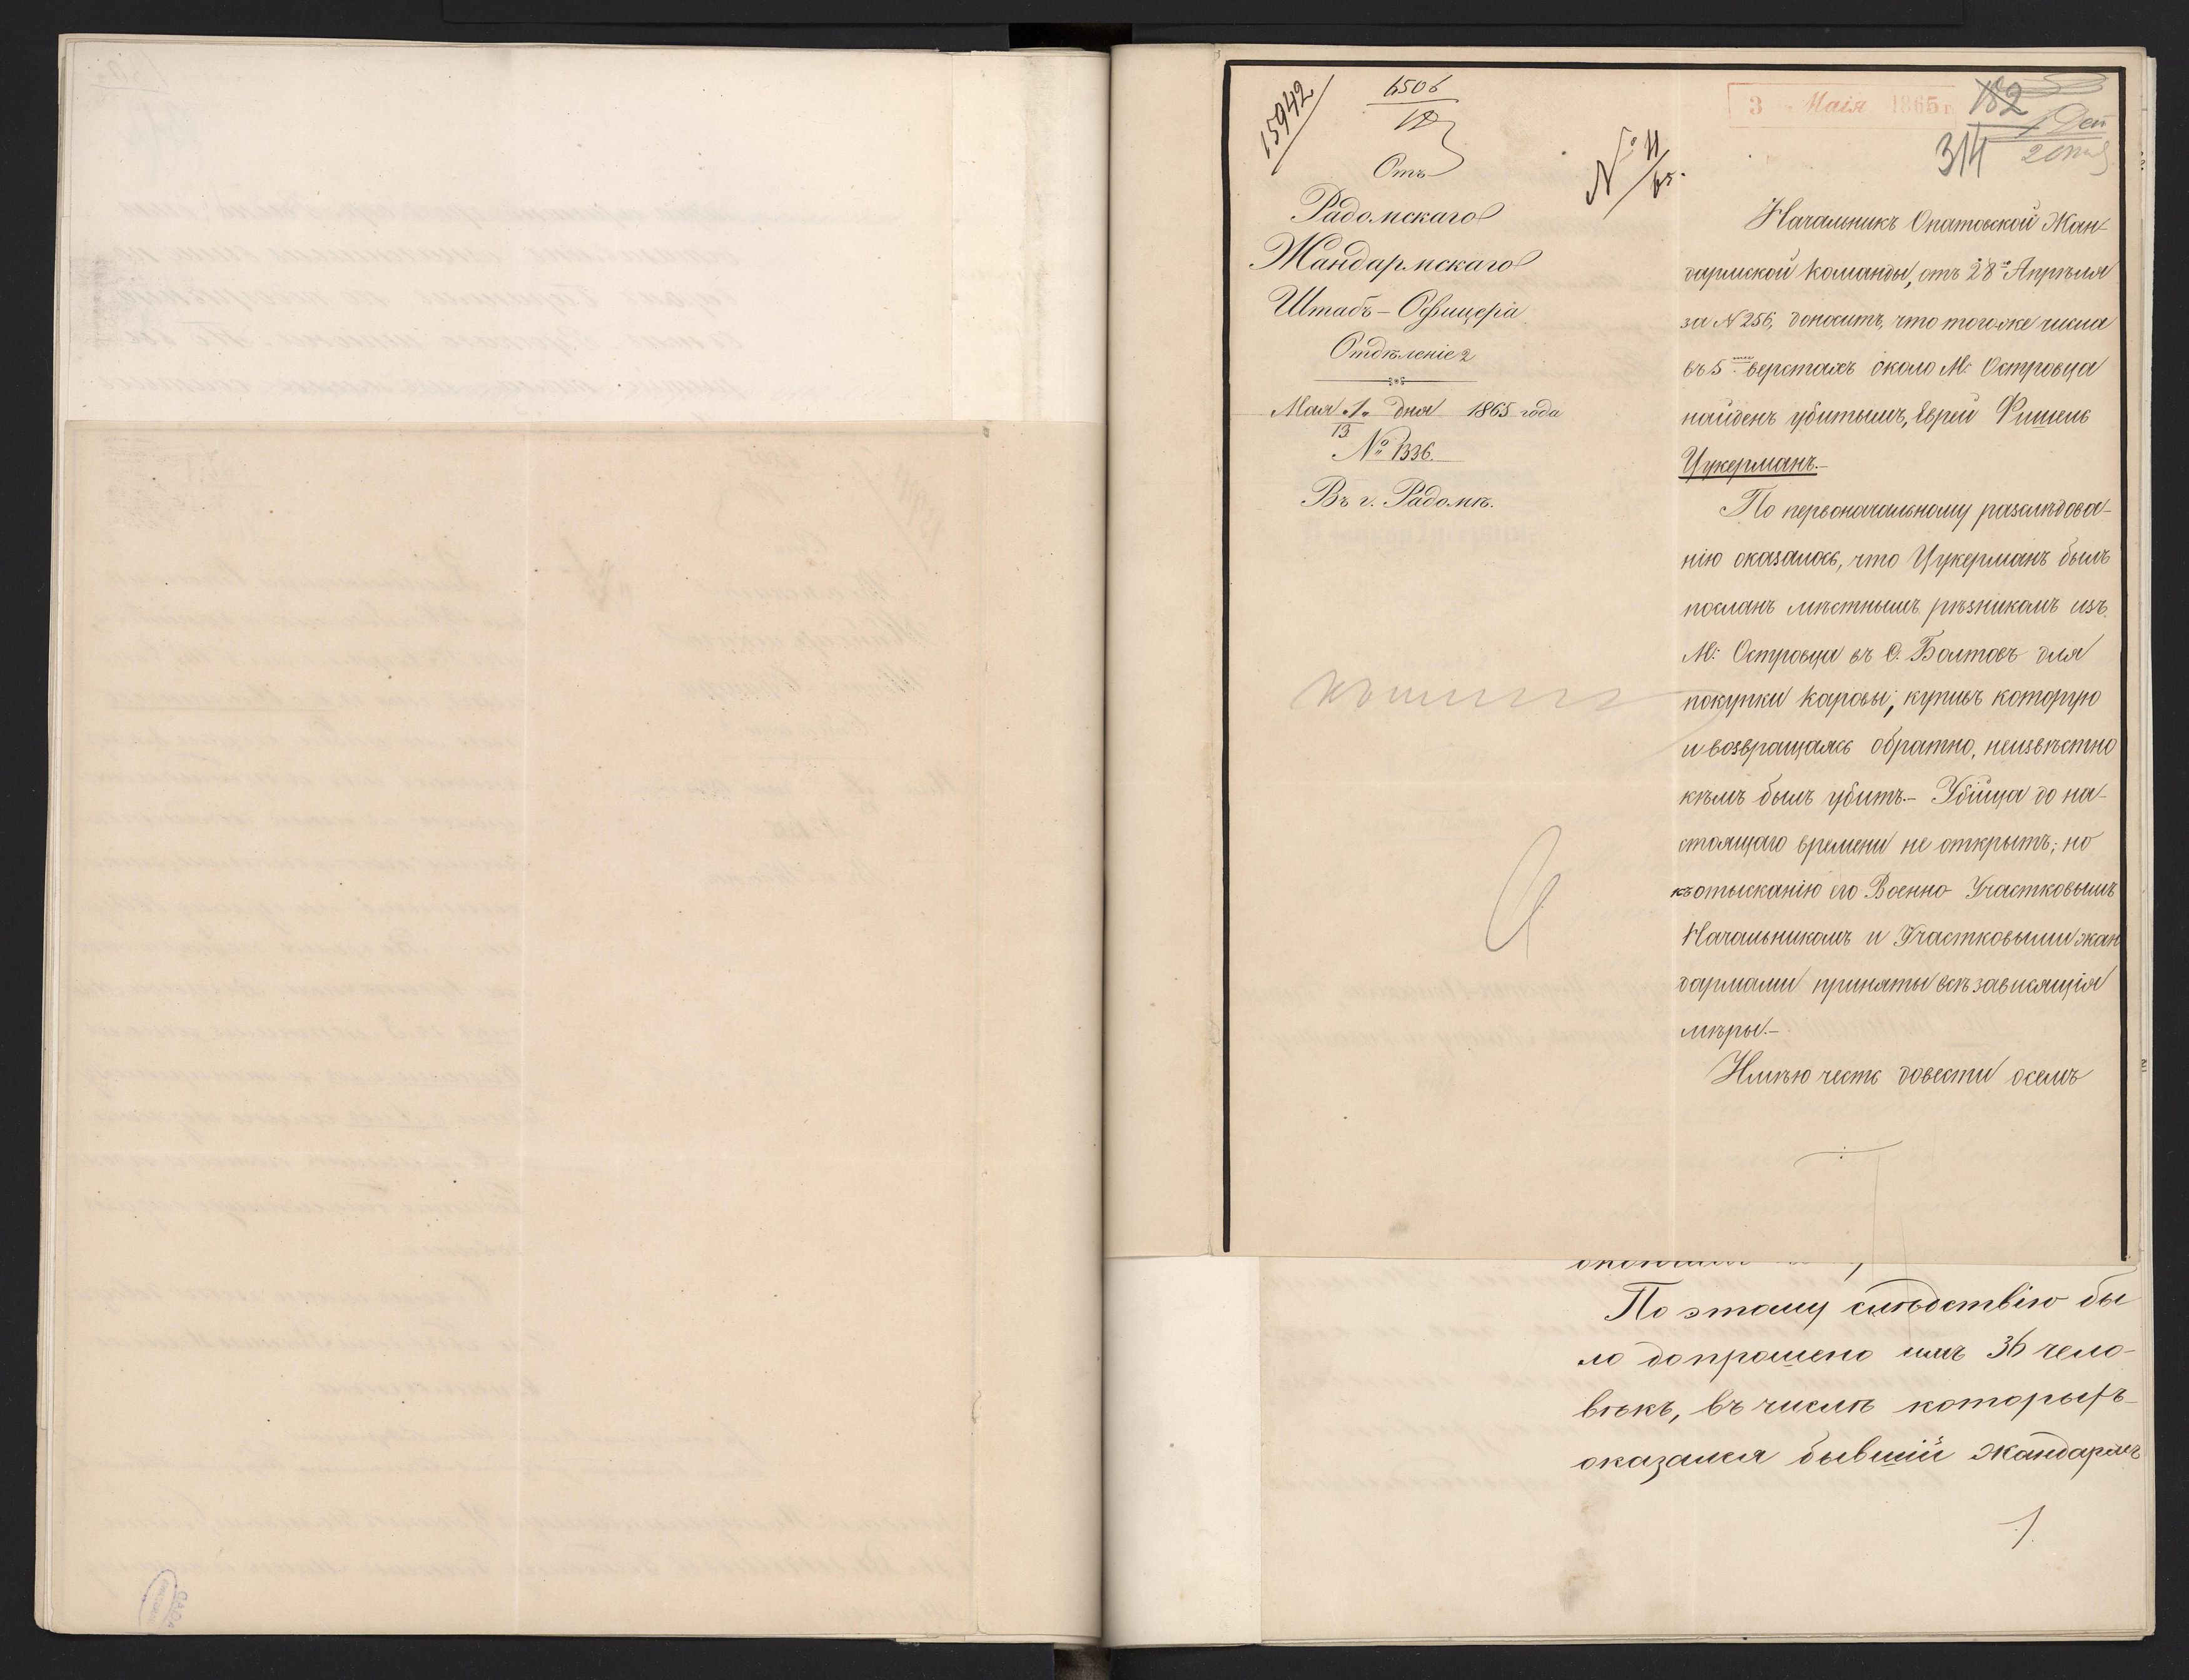 15942
6506
3 Маія 1865 г.
182
314
№ 11/65.
Отъ
Радомскаго
Жандармскаго
Штабъ-Офицера
Отдѣленіе 2
Мая 1/13 дня 1865 года
№ 1336.
Въ г. Радомѣ.
Начальникъ Опатовской Жан-
дармской команды, отъ 28го Апрѣля
за N 256, доноситъ, что того же числа
въ 5ти верстахъ около М. Островца
найденъ убитымъ, Еврей Фишель
Цукерманъ.-
По первоначальному разслѣдова-
нію оказалось, что Цукерманъ былъ
посланъ мѣстнымъ рѣзникомъ изъ
М. Островца въ С. Балтовъ для
покупки каровы; купивъ которую
и возвращаясь обратно, неизвѣстно
кѣмъ былъ убитъ.- Убійца до на-
стоящаго времени не открытъ; но
къ отысканію его Военно Участковымъ
Начальникомъ и Участковыми жан
дармами приняты всѣ зависящія
мѣры.-
Имѣю честь довести осемъ
По этому слѣдствію бы
ло допрошено имъ 36 чело-
вѣкъ, въ числѣ которыхъ
оказался бывшій жандармъ